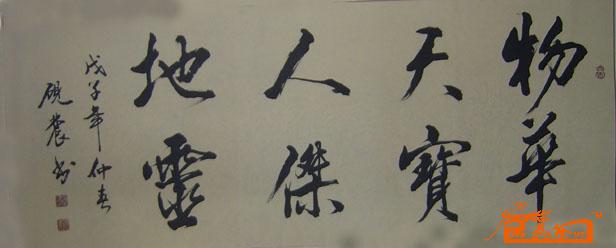 物華
天寶
人傑
地靈
戊子年仲春
硯農書